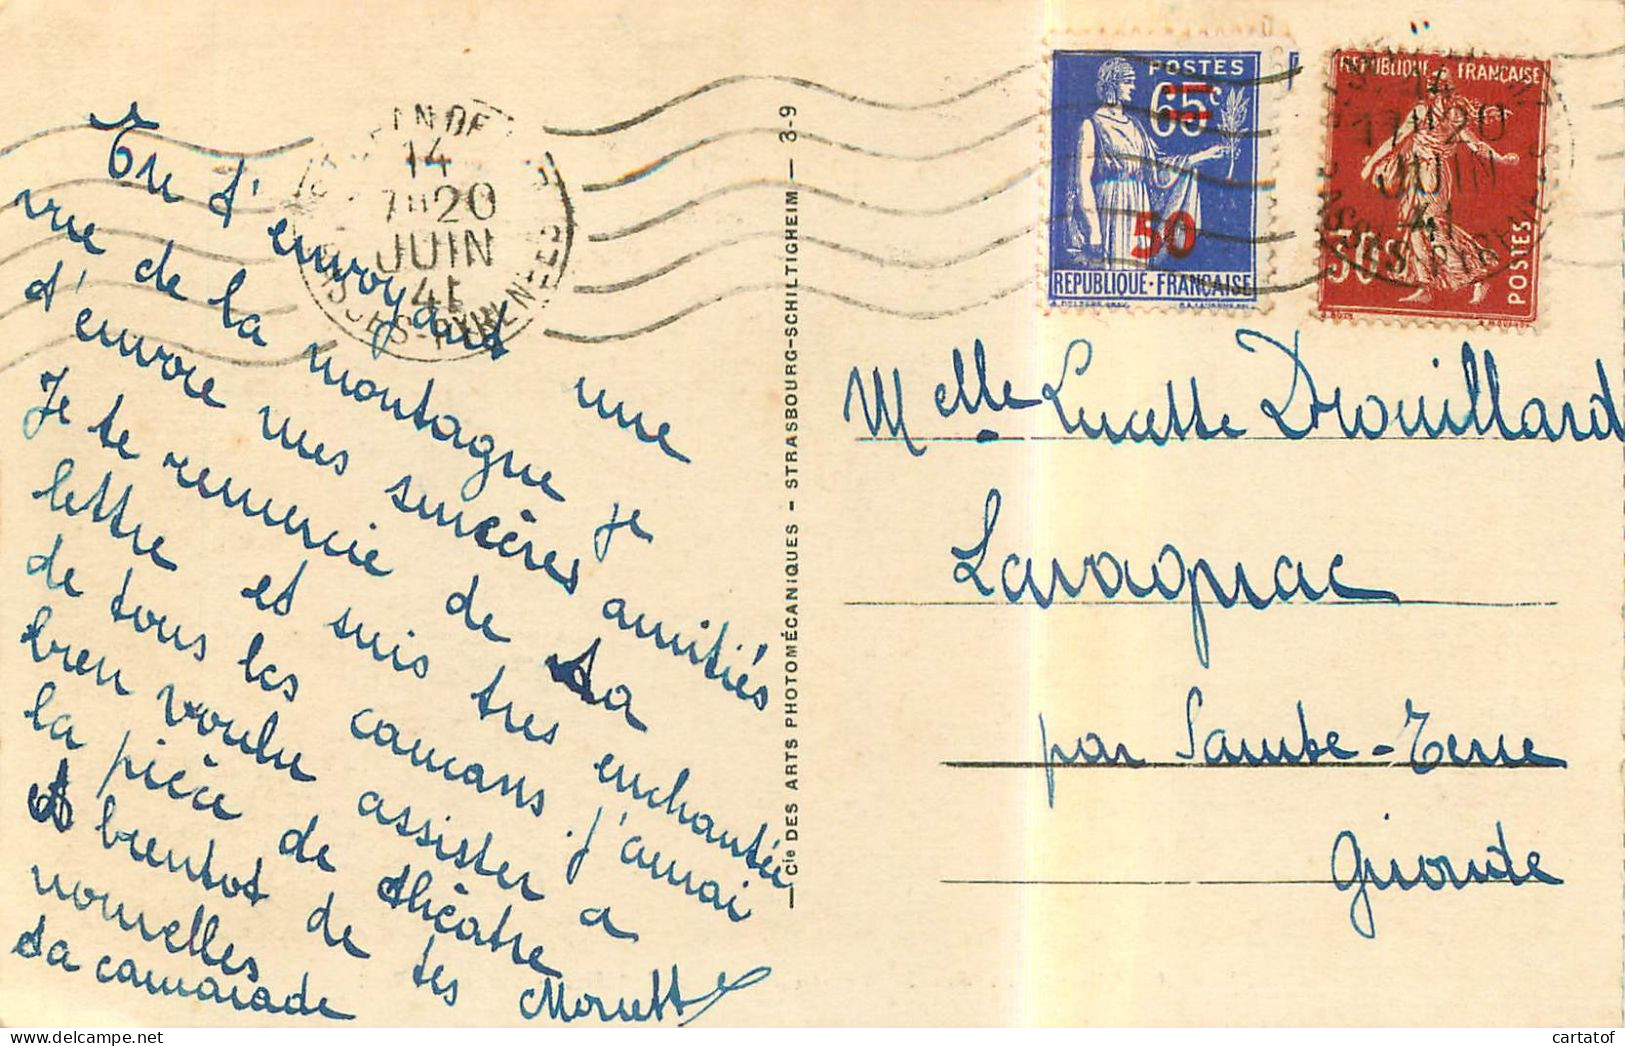 En t'envoyant une
vue de la montagne je
t'envoie mes sincères amitiés
Je te remercie de ta
lettre et suis tres enchantée
de tous les cancans. j'aurai
bien voulu assister a
la pièce de théâtre
A bientot de tes
nouvelles
ta camarade Moriette
Cie DES ARTS PHOTOMÉCANIQUES - STRASBOURG-SCHILTIGHEIM - 3-9
14
17H20
JUIN
41
BASSES-PYRENEES
POSTES
65c
50
REPUBLIQUE·FRANÇAISE
REPUBLIQUE FRANÇAISE
14
17H20
JUIN
41
30c
POSTES
Melle Lucette Drouillard
Lavagnac
par Sainte-Terre
Gironde
cartatof